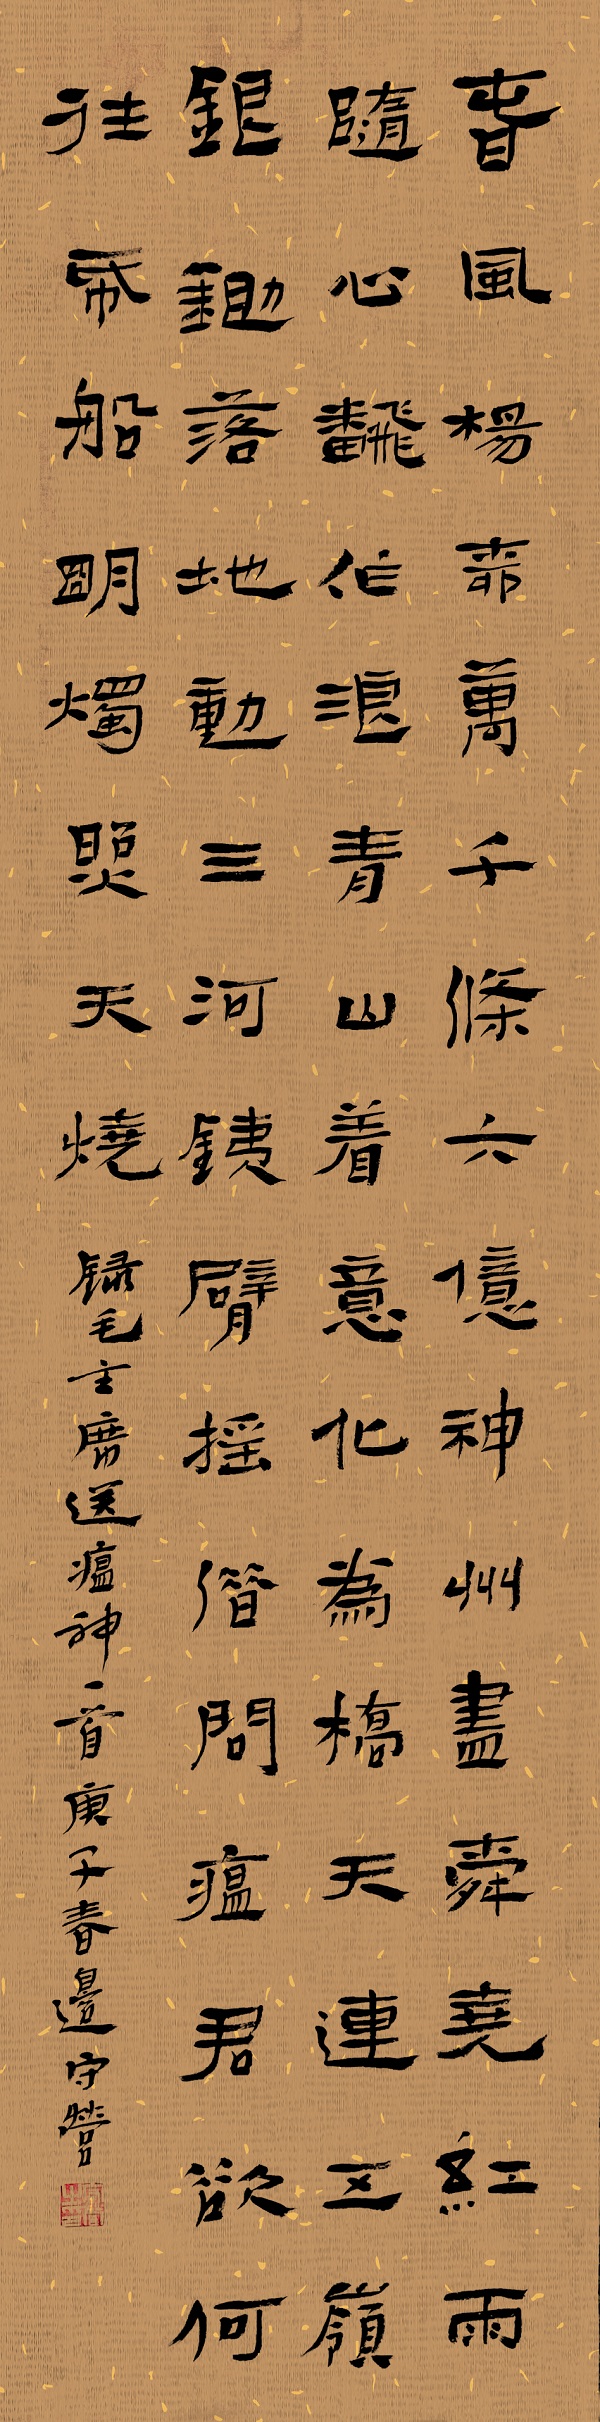 春風楊柳萬千條六億神州盡舜堯紅雨
隨心飜作浪青山着意化為橋天連五嶺
銀鋤落地動三河銕臂摇借問瘟君欲何
往帋船明燭照天燒 録毛主席送瘟神一首庚子春邊守營